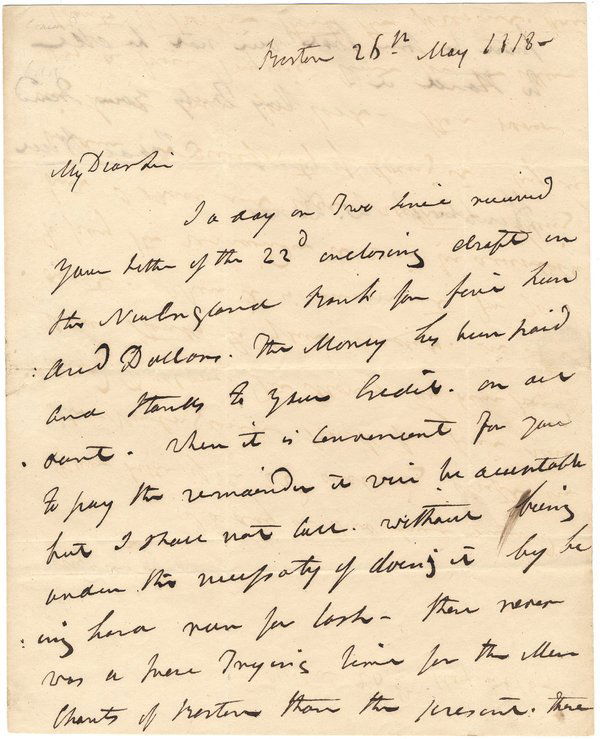 Boston 26th May 1818-
My Dear Sir
I a day or Two since received
your letter of the 22d enclosing draft on
the New England Bank for five hun
:dred Dollars. The Money has been paid
and stands to your Credit. on acc
.ount. when it is convenient for you
to pay the remainder it will be acceptable
but I shall not call. without being
under the necessity of doing it by be
:ing hard run for Cash- there never
was a more Trying time for the Mer
Chants of Boston than the present. there